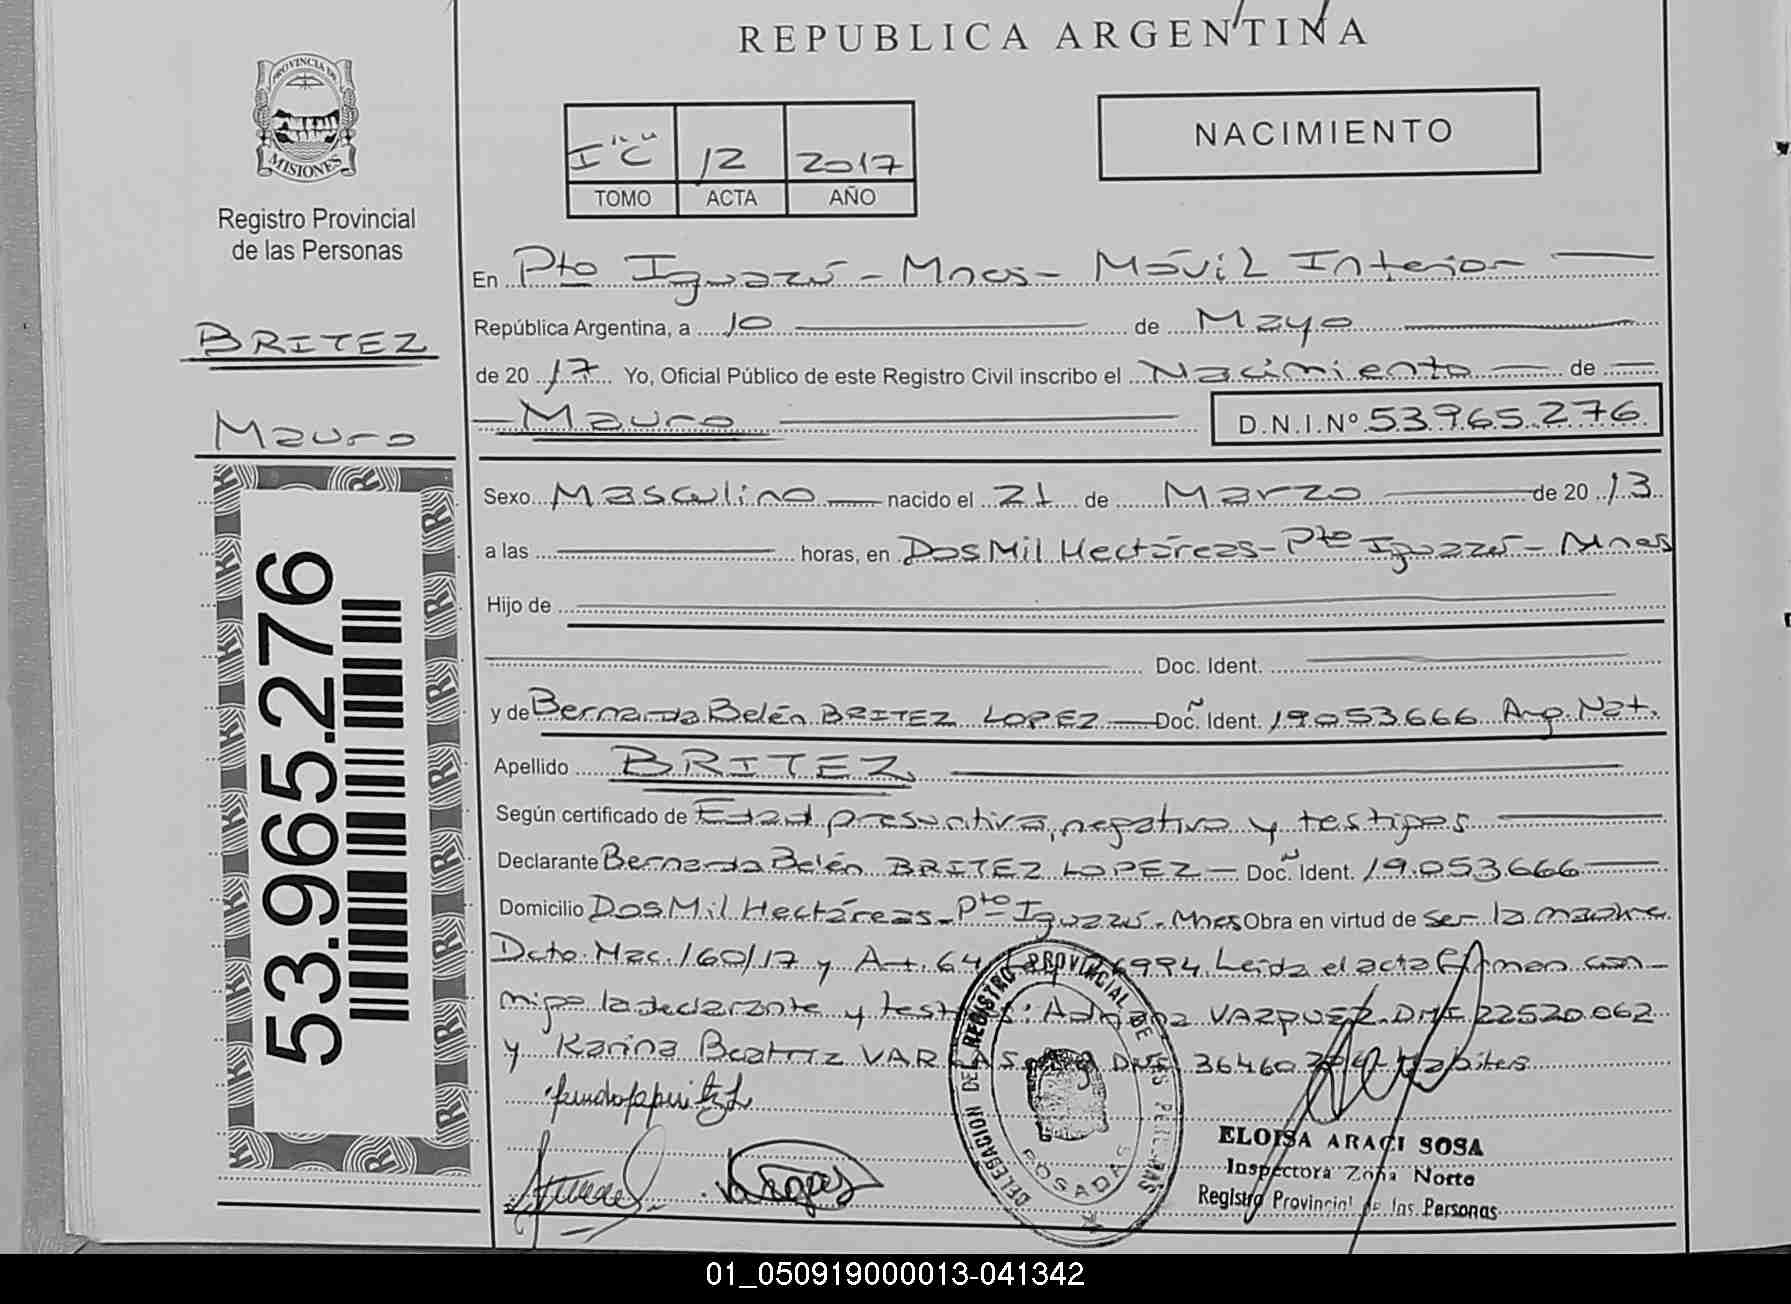 REPUBLICA ARGENTINA
PROVINCIA DE
MISIONES
Registro Provincial
de las Personas
I "C" 12 2017
TOMO ACTA AÑO
NACIMIENTO
BRITEZ
Mauro
53.965.276
En Pto Iguazú - Mnes - Móvil Interior
República Argentina, a 10 de Mayo
de 2017 Yo, Oficial Público de este Registro Civil inscribo el Nacimiento de
Mauro D.N.I.Nº 53.965.276
Sexo Masculino nacido el 21 de Marzo de 2013
a las horas, en Dos Mil Hectáreas - Pto Iguazú - Mnes
Hijo de
Doc. Ident.
y de Bernarda Belén BRITEZ LOPEZ Doc. Ident. 19.053.666 Arg. Nat.
Apellido BRITEZ
Según certificado de Edad presuntiva, negativo y testigos
Declarante Bernarda Belén BRITEZ LOPEZ Doc. Ident. 19.053.666
Domicilio Dos Mil Hectáreas - Pto Iguazú - Mnes Obra en virtud de ser la madre.
Dcto. Nac. 160/17 y Art. 64 Leída el acta firman con-
migo la declarante y testigos: Adriana VAZQUEZ DNI 22520.062
y Karina Beatriz VARGAS DNI
DELEGACION DEL REGISTRO PROVINCIAL DE LAS PERSONAS
POSADAS
ELOISA ARACI SOSA
Inspectora Zona Norte
Registro Provincial de las Personas
01_050919000013-041342